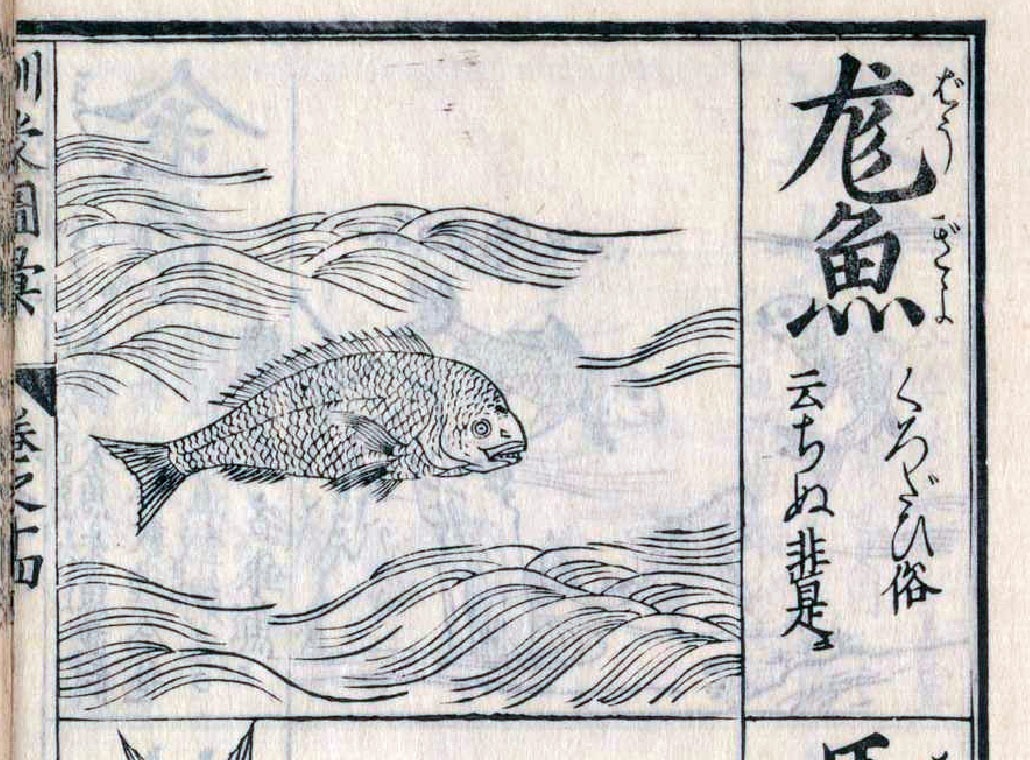 ばうぎよ
尨魚
くろだひ俗
云ちぬ非是
訓蒙圖彙
卷之十四